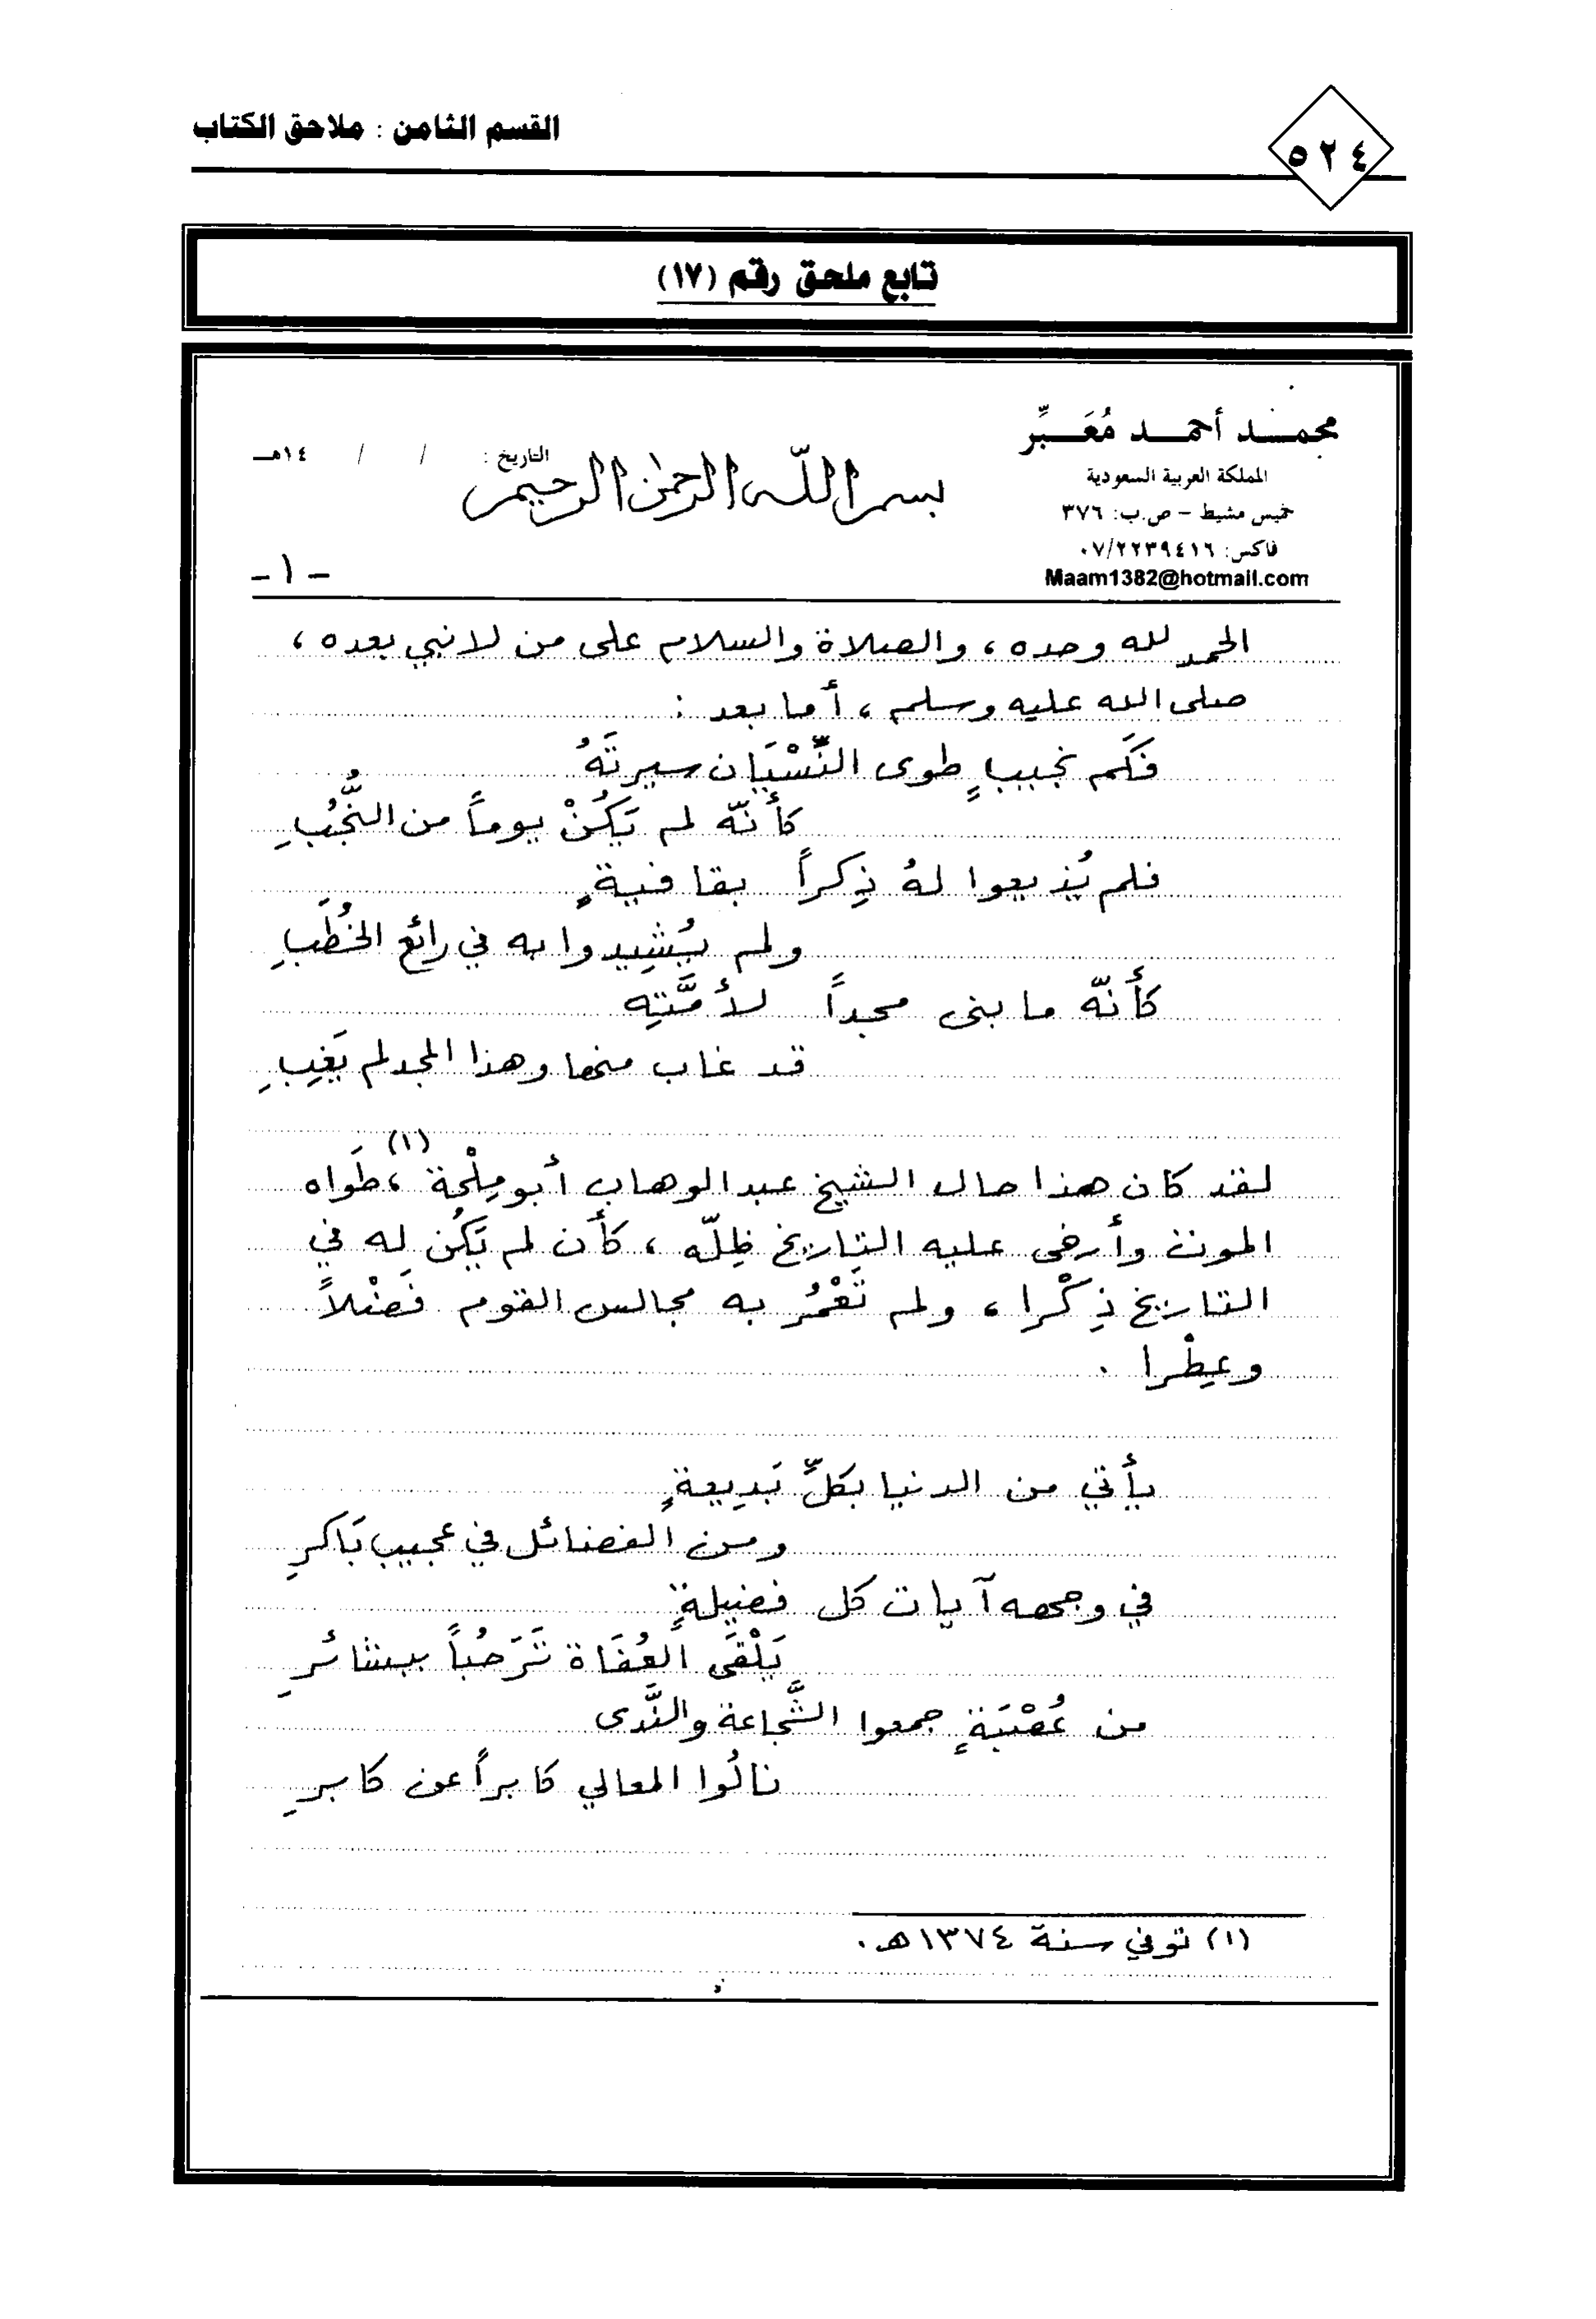 القسم الثامن : ملاحق الكتاب
٥٢٤
تابع ملحق رقم (١٧)
محمد أحمد مُعَبِّر
المملكة العربية السعودية
خميس مشيط - ص.ب: ٣٧٦
فاكس: ٠٧/٢٢٣٩٤١٦
Maam1382@hotmail.com
بسم الله الرحمن الرحيم
التاريخ : / / ١٤هـ
-١-
الحمد لله وحده ، والصلاة والسلام على من لا نبي بعده ،
صلى الله عليه وسلم ، أما بعد :
فَكَم نجيبٍ طوى النِّسْيَان سيرتَهُ
كأنّه لم يَكُنْ يوماً من النُّجُبِ
فلم يُذيعوا لهُ ذِكراً بقافيةٍ
ولم يُشِيدوا به في رائع الخُطَبِ
كأنّه ما بنى مجداً لأمَّتِه
قد غاب منها وهذا المجد لم يَغِبِ
لقد كان هذا حال الشيخ عبدالوهاب أبو مِلْحة (١) ، طَواه
الموت وأرخى عليه التاريخ ظِلّه ، كأن لم يَكُن له في
التاريخ ذِكْرا ، ولم تَعْمُر به مجالس القوم فَضْلاً
وعِطْرا .
يأتي من الدنيا بكلِّ بَدِيعةٍ
ومن الفضائل في عجيب بَاكرِ
في وجهه آيات كل فضيلةٍ
يَلْقَى العُفَاة تَرَحُباً ببشائرِ
من عُصْبَةٍ جمعوا الشَّجاعة والنَّدى
نالُوا المعالي كابراً عن كابرِ
(١) توفي سنة ١٣٧٤هـ .